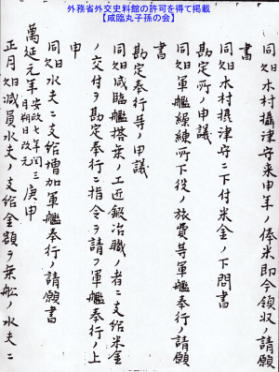 外務省外交史料館の許可を得て掲載
【咸臨丸子孫の会】
同日木村攝津守来申年ノ俸米即今領収ノ請願
書
同日木村攝津守ニ下付米金ノ下問書
勘定所ノ申議
同日軍艦操練所下役ノ旅費等軍艦奉行ノ請願
書
勘定奉行等ノ申議
同日咸臨艦搭乗ノ工匠鍛冶職ノ者ニ支給米金
ノ交付ヲ勘定奉行ニ指令ヲ請フ軍艦奉行ノ上
申
同日水夫ニ支給増加軍艦奉行ノ請願書
萬延元年 安政七年閏三月朔日改元 庚申
正月 日減員水夫ノ支給金額ヲ乗船ノ水夫ニ